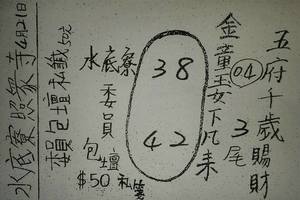 五府千歲賜財
04 3尾
金童玉女下凡来
38
42
水底寮
委員
包壇
$50 私籤
包壇私籤50元
水底寮照家寺4月21日